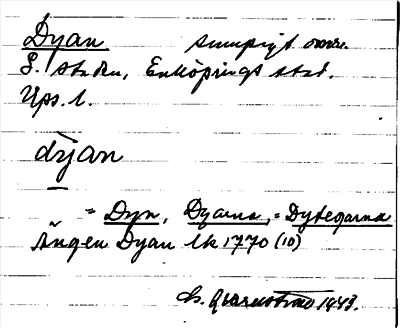 Dyan. sumpigt omr.
S. staden, Enköpings stad.
Ups. l.
dỳan
= Dyn, Dyarna, = Dytegarna
Ängen Dyan Lk 1770 (10)
1943.